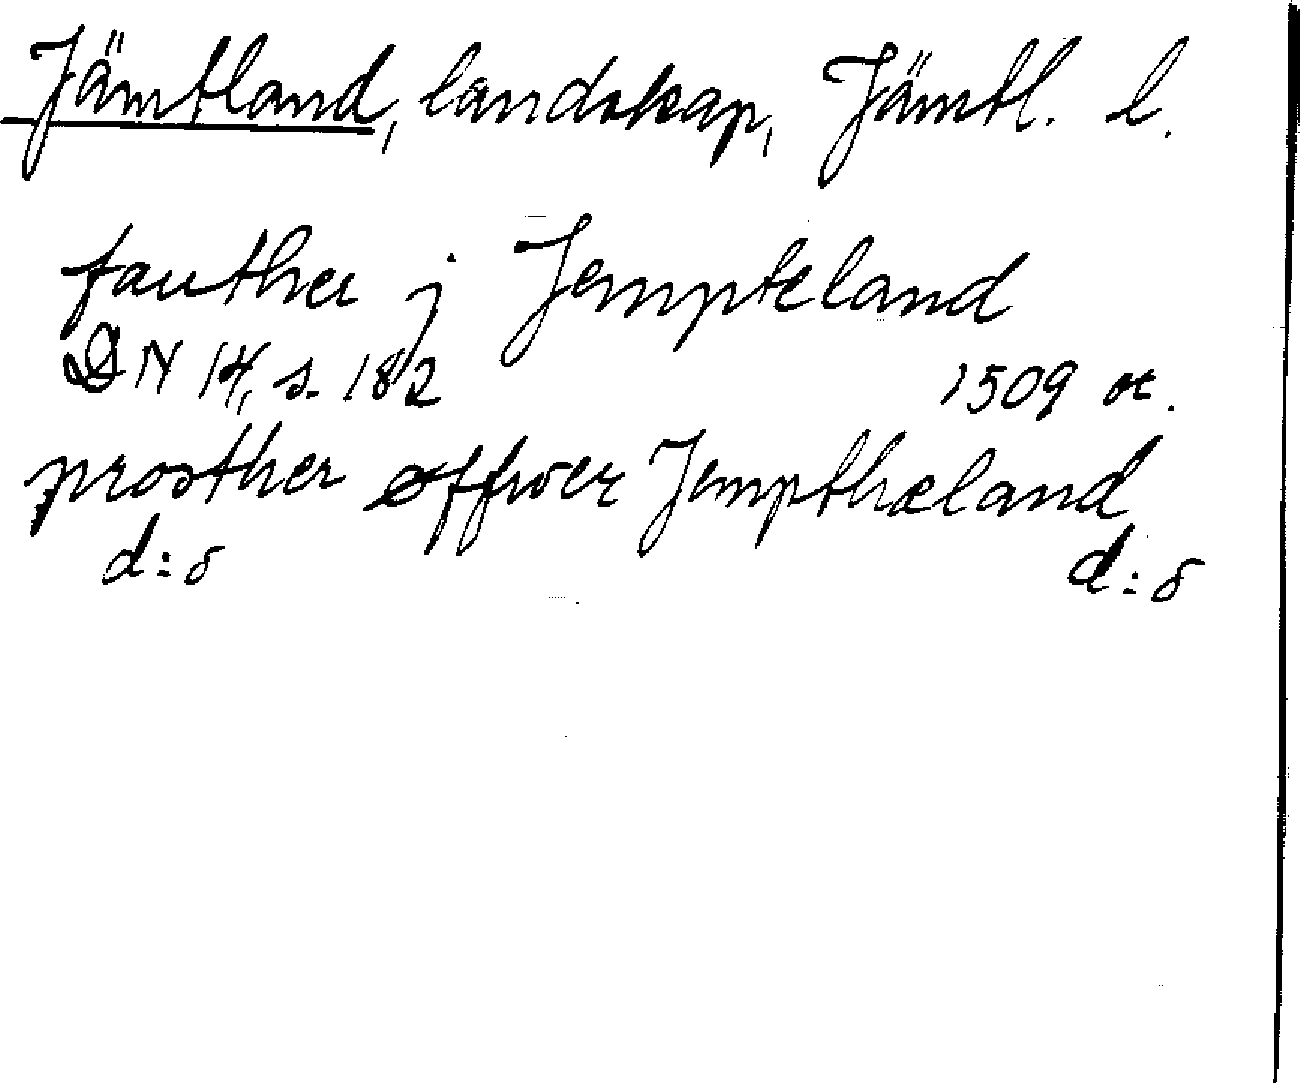 Jämtland, landskap, Jämtl. l.
fauther j Jempteland
DN 14, s. 182 1509 or.
prosther offwer Jemptheland
d:o d:o